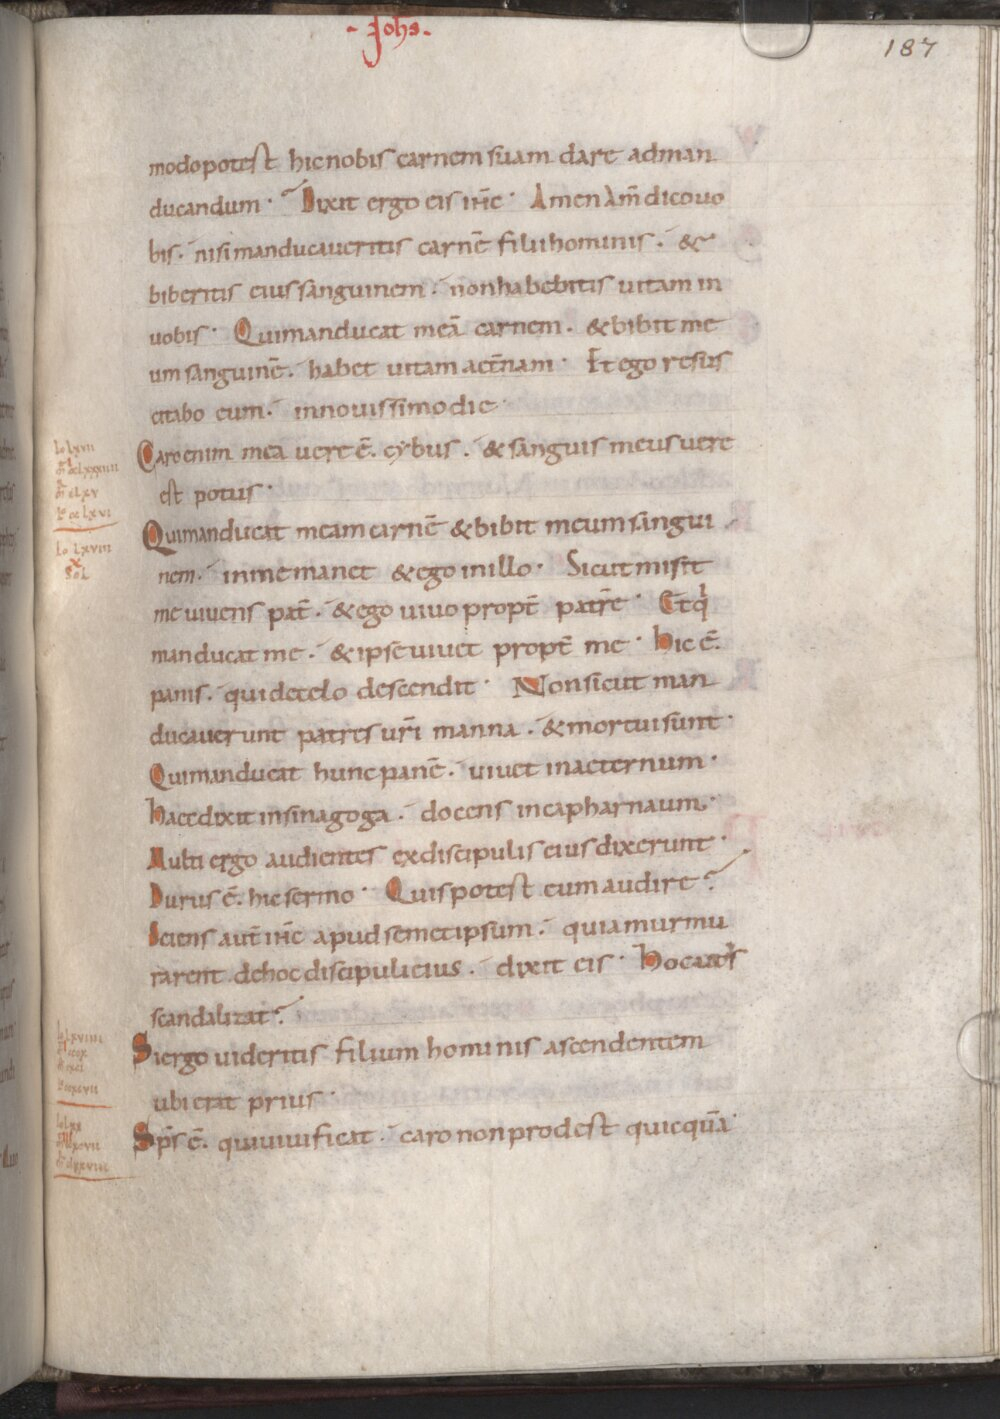 - Johs -
187
modo potest hic nobis carnem suam dare adman
ducandum · Dixit ergo eis ih̅c · Amen am̅ dico uo
bis · nisi manducaueritis carnē filii hominis · &
biberitis eius sanguinem · non habebitis uitam in
uobis · Qui manducat meā carnem · & bibit me
um sanguinē · habet uitam aet̄nam · Et ego resus
citabo eum · in nouissimo die ·
Caro enim mea uere ē · cybus · & sanguis meus uere
est potus ·
Qui manducat meam carnē & bibit meum sangui
nem · in me manet & ego in illo · Sicut misit
me uiuens pat̄ · & ego uiuo propt̄ patrē · Et q̇
manducat me · & ipse uiuet propt̄ me · hic ē
panis · qui de celo descendit · Non sicut man
ducauerunt patres ur̄i manna · & mortui sunt ·
Qui manducat hunc panē · uiuet in aeternum ·
haec dixit in sinagoga · docens in capharnaum ·
Multi ergo audientes ex discipulis eius dixerunt ·
Durus ē · hic sermo · Quis potest eum audire ?
Sciens aut̄ ih̅c apud semetipsum · quia murmu
rarent de hoc discipuli eius · dixit eis · hoc uos
scandalizat ?
Si ergo uideritis filium hominis ascendentem
ubi erat prius ·
Sp̄s ē · qui uiuificat · caro non prodest quicquā ·
Io lxvii
Io lxviii
x
Sol
Io lxviiii